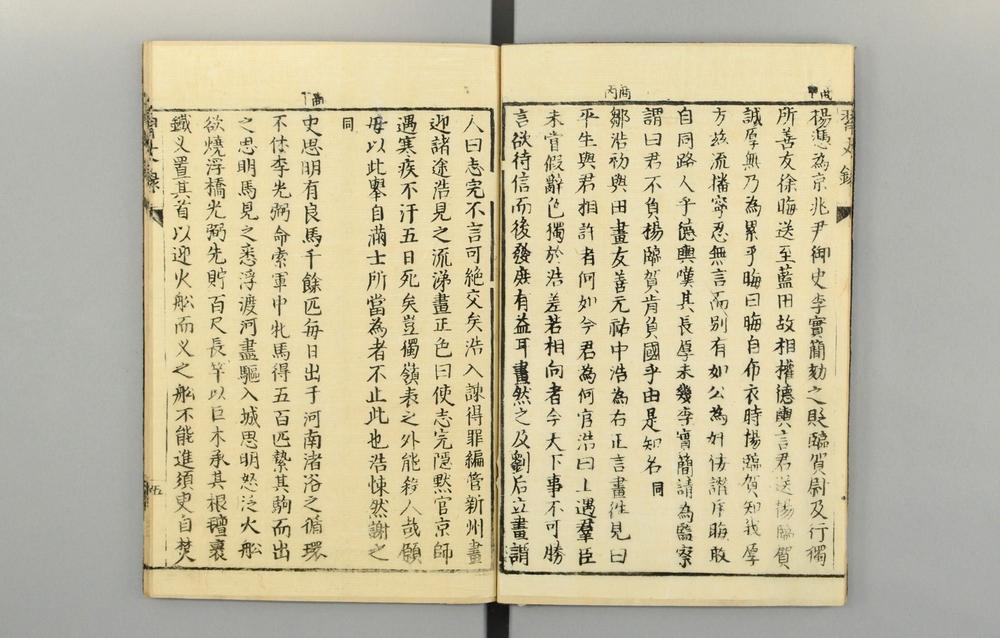 楊憑為京兆尹御史李實簡劾之貶臨賀尉及行獨
所善友徐晦送至藍田故相權德輿言君送楊臨賀
誠厚無乃為累乎晦曰晦自布衣時楊臨賀知我厚
方茲流播寧忍無言而別有如公為奸佞譖斥晦敢
自同路人乎德輿嘆其長厚未幾李實簡請為監察
謂曰君不負楊臨賀肯負國乎由是知名 同
鄒浩初與田畫友善元祐中浩為右正言畫往見曰
平生與君相許者何如今君為何官浩曰上遇羣臣
未嘗假辭色獨於浩差若相向者今天下事不可勝
言欲待信而後發庶有益耳畫然之及劉后立畫謂
人曰志完不言可絕交矣浩入諫得罪編管新州畫
迎諸途浩見之流涕畫正色曰使志完隱默官京師
遇寒疾不汗五日死矣豈獨嶺表之外能殺人哉願
毋以此舉自滿士所當為者不止此也浩悚然謝之
同
史思明有良馬千餘匹每日出于河南渚浴之循環
不休李光弼命索軍中牝馬得五百匹縶其駒而出
之思明馬見之悉浮渡河盡驅入城思明怒泛火船
欲燒浮橋光弼先貯百尺長竿以巨木承其根氊裹
鐵叉置其首以迎火船而叉之船不能進須臾自焚